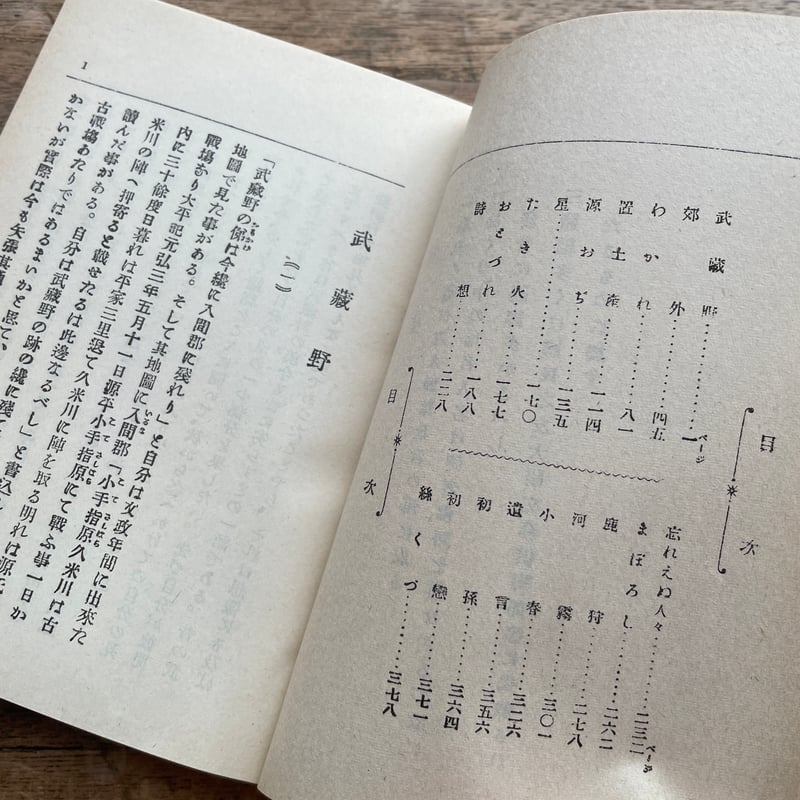 目次
武藏野……一ページ
郊外……四五
わかれ……八一
置土産……一一四
源おぢ……一三五
星……一七〇
たき火……一七七
おとづれ……一八八
詩想……二一八
忘れえぬ人々……二三二ページ
まぼろし……二六二
鹿狩……二七八
河霧……三〇一
小春……三二六
遺言……三五六
初孫……三六四
初戀……三七一
絲くづ……三七八
目次
1
武藏野
(一)
「武藏野の俤は今纔に入間郡に殘れり」と自分は文政年間に出來た
地圖で見た事がある。そして其地圖に入間郡「小手指原久米川は古
戰場なり太平記元弘三年五月十一日源平小手指原にて戰ふ事一日か
內に三十餘度日暮れは平家三里退て久米川に陣を取る明れは源氏
米川の陣へ押寄ると載せたるは此邊なるべし」と書込んで
讀んだ事がある。自分は武藏野の跡の纔に殘て
古戰場あたりではあるまいかと思て、
かないが實際は今も矢張其通